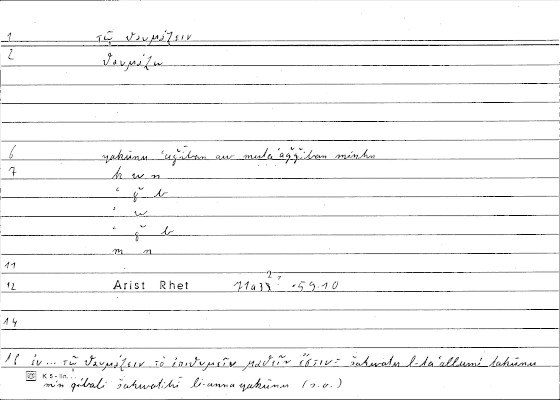 1 τῷ θαυμάζειν
2 θαυμάζω
6 yakūnu ʿaǧīban au mutaʿaǧǧiban minhu
7 k w n
ʿ ǧ b
ʾ w
ʿ ǧ b
m n
11
12 Arist Rhet 71a33 59.10
14
15 ἐν ... τῷ θαυμάζειν τὸ ἐπιθυμεῖν μαθεῖν ἐστιν = šahwatu l-taʿallumi takūnu
K 5 - lin.
min qibali šahwatihī li-anna yakūnu (s.o.)